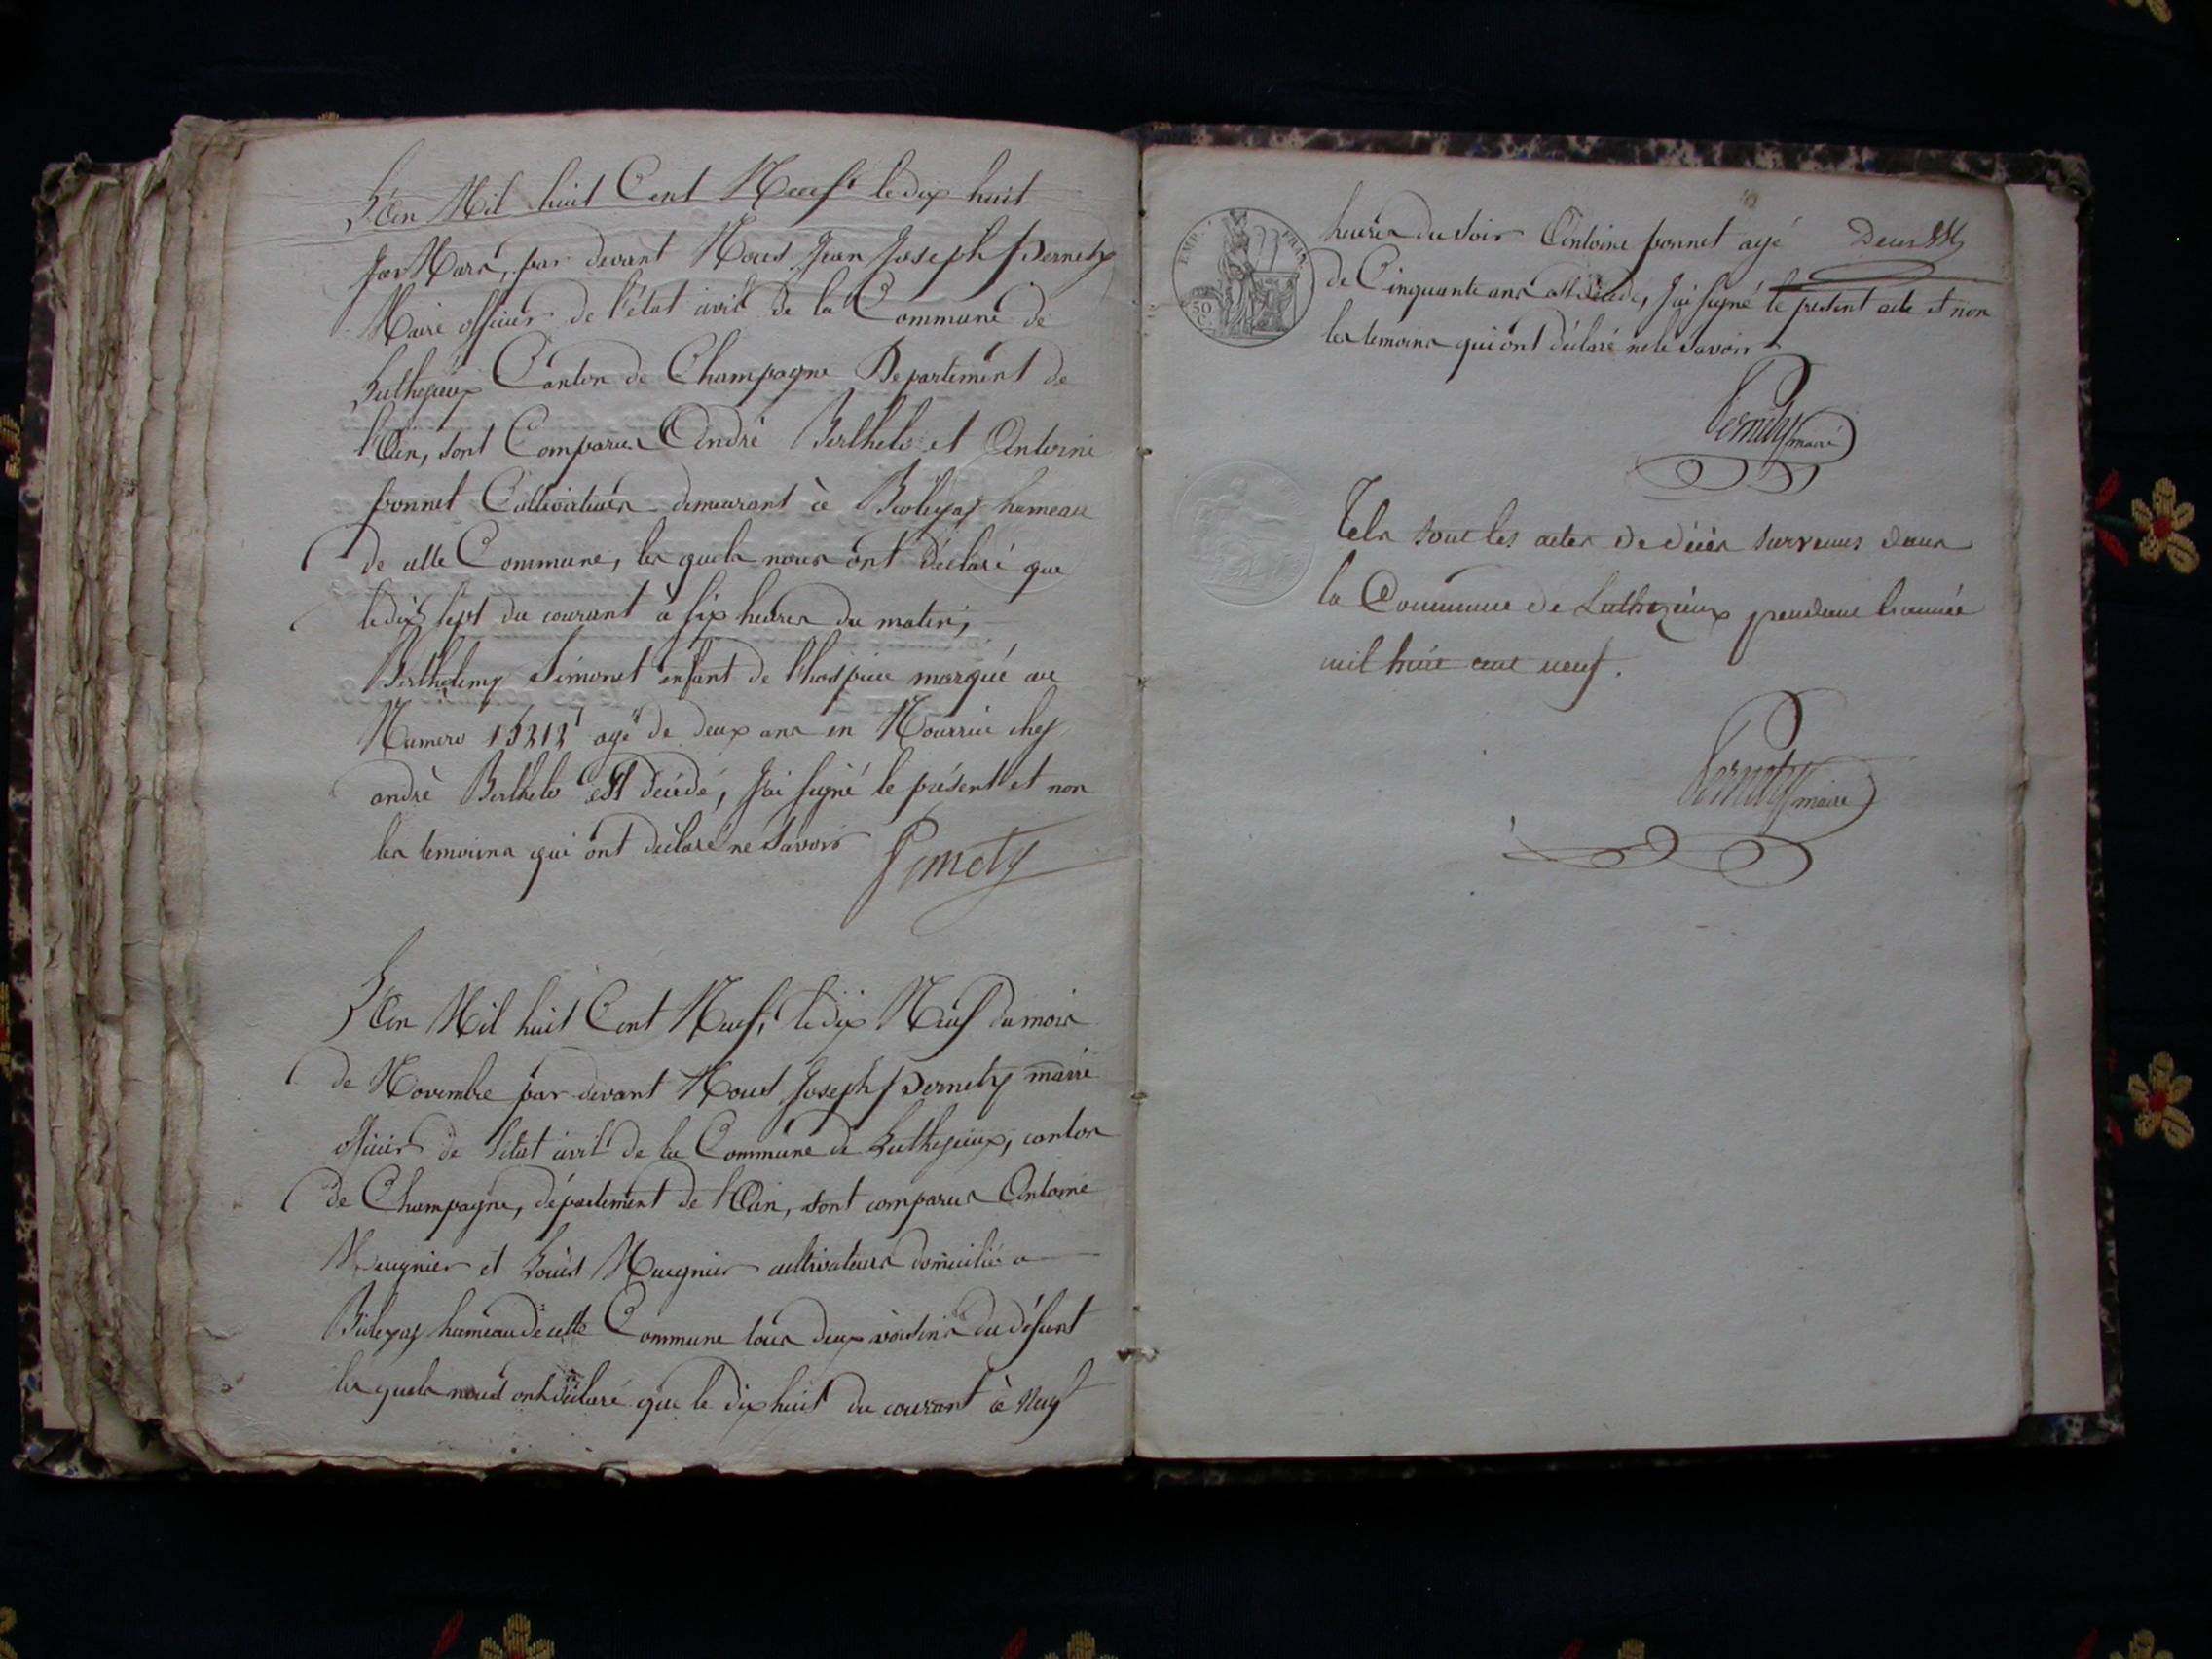 L'an Mil huit Cent Neuf le dix huit
Mars, par devant Nous Jean Joseph Pernety
Maire officier de l'état civil de la Commune de
Luthezieux Canton de Champagne Departement de
l'Ain, sont Comparus André Berthelo et Antoine
bonnet Cultivateurs demeurant à hameau
de cette Commune, les quels nous ont déclaré que
le dix sept du courant à six heures du matin,
Berthelemy Simonet enfant de l'hospice marqué au
Numero 15212 agé de deux ans en Nourrice chez
andré Berthelo est décédé, j'ai signé le présent et non
les temoins qui ont déclaré ne savoir Pernety
L'an Mil huit Cent Neuf, le dix Neuf du mois
de Novembre par devant Nous Joseph Pernety maire
officier de l'état civil de la Commune de Luthezieux, canton
de Champagne, département de l'Ain, sont comparus Antoine
Meugnier et Louis Meugnier cultivateurs domicilié a
hameau de cette Commune tous deux voisins du défunt
les quels nous ont déclaré que le dix huit du courant à neuf
EMP. FRAN.
50 C.
heures du soir Antoine bonnet agé
de Cinquante ans est décédé, j'ai signé le présent acte et non
les temoins qui ont déclaré ne le savoir
Pernety maire
Tels sont les actes de décès survenus dans
la Commune de Luthezieux pendant l'année
mil huit cent neuf.
Pernety maire